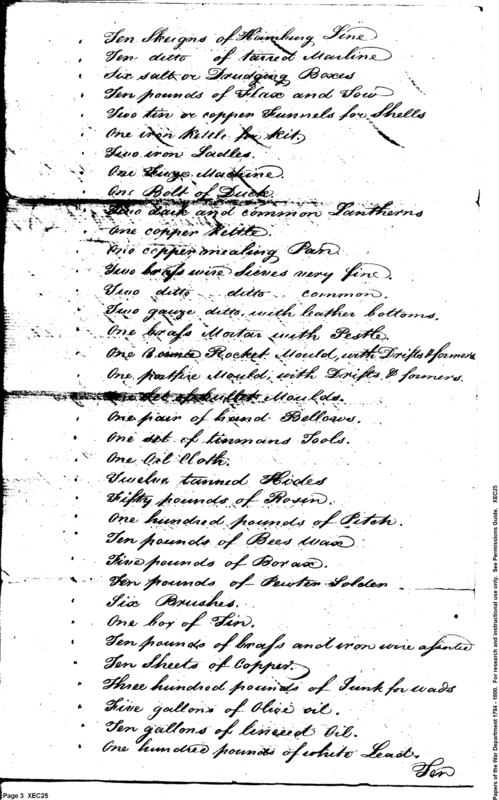 Ten Skeigns of Hamburg Line
Ten ditto of tarred Marline
Six salt or Drudging Boxes
Ten pounds of Flax and Tow
Two tin or copper Funnels for Shells
One iron Kettle for kit.
Two iron Ladles.
One Fuze Machine.
One Bolt of Duck
Two dark and common Lantherns
One copper Kettle.
One copper mealing Pan
Two brass wire Sieves very fine.
Two ditto ditto common
Two gauze ditto, with leather bottoms.
One brass Mortar with Pestle.
One Rocket Mould, with Drifts & formers
One portfire Mould, with Drifts & formers.
One set of bullet Moulds.
One pair of hand Bellows.
One set of tinmans Tools.
One Oil Cloth.
Twelve tanned Hides
Fifty pounds of Rosin.
One hundred pounds of Pitch.
Ten pounds of Bees Wax
Five pounds of Borax.
Ten pounds of Pewter Solder
Six Brushes.
One box of Tin.
Ten pounds of brass and iron wire asorted
Ten Sheets of Copper.
Three hundred pounds of Junk for wads
Five gallons of Olive oil.
Ten gallons of linseed Oil.
One hundred pounds of white Lead.
Ten
Page 3 XEC25
Papers of the War Department 1784 - 1800. For research and instructional use only. See Permissions Guide. XEC25